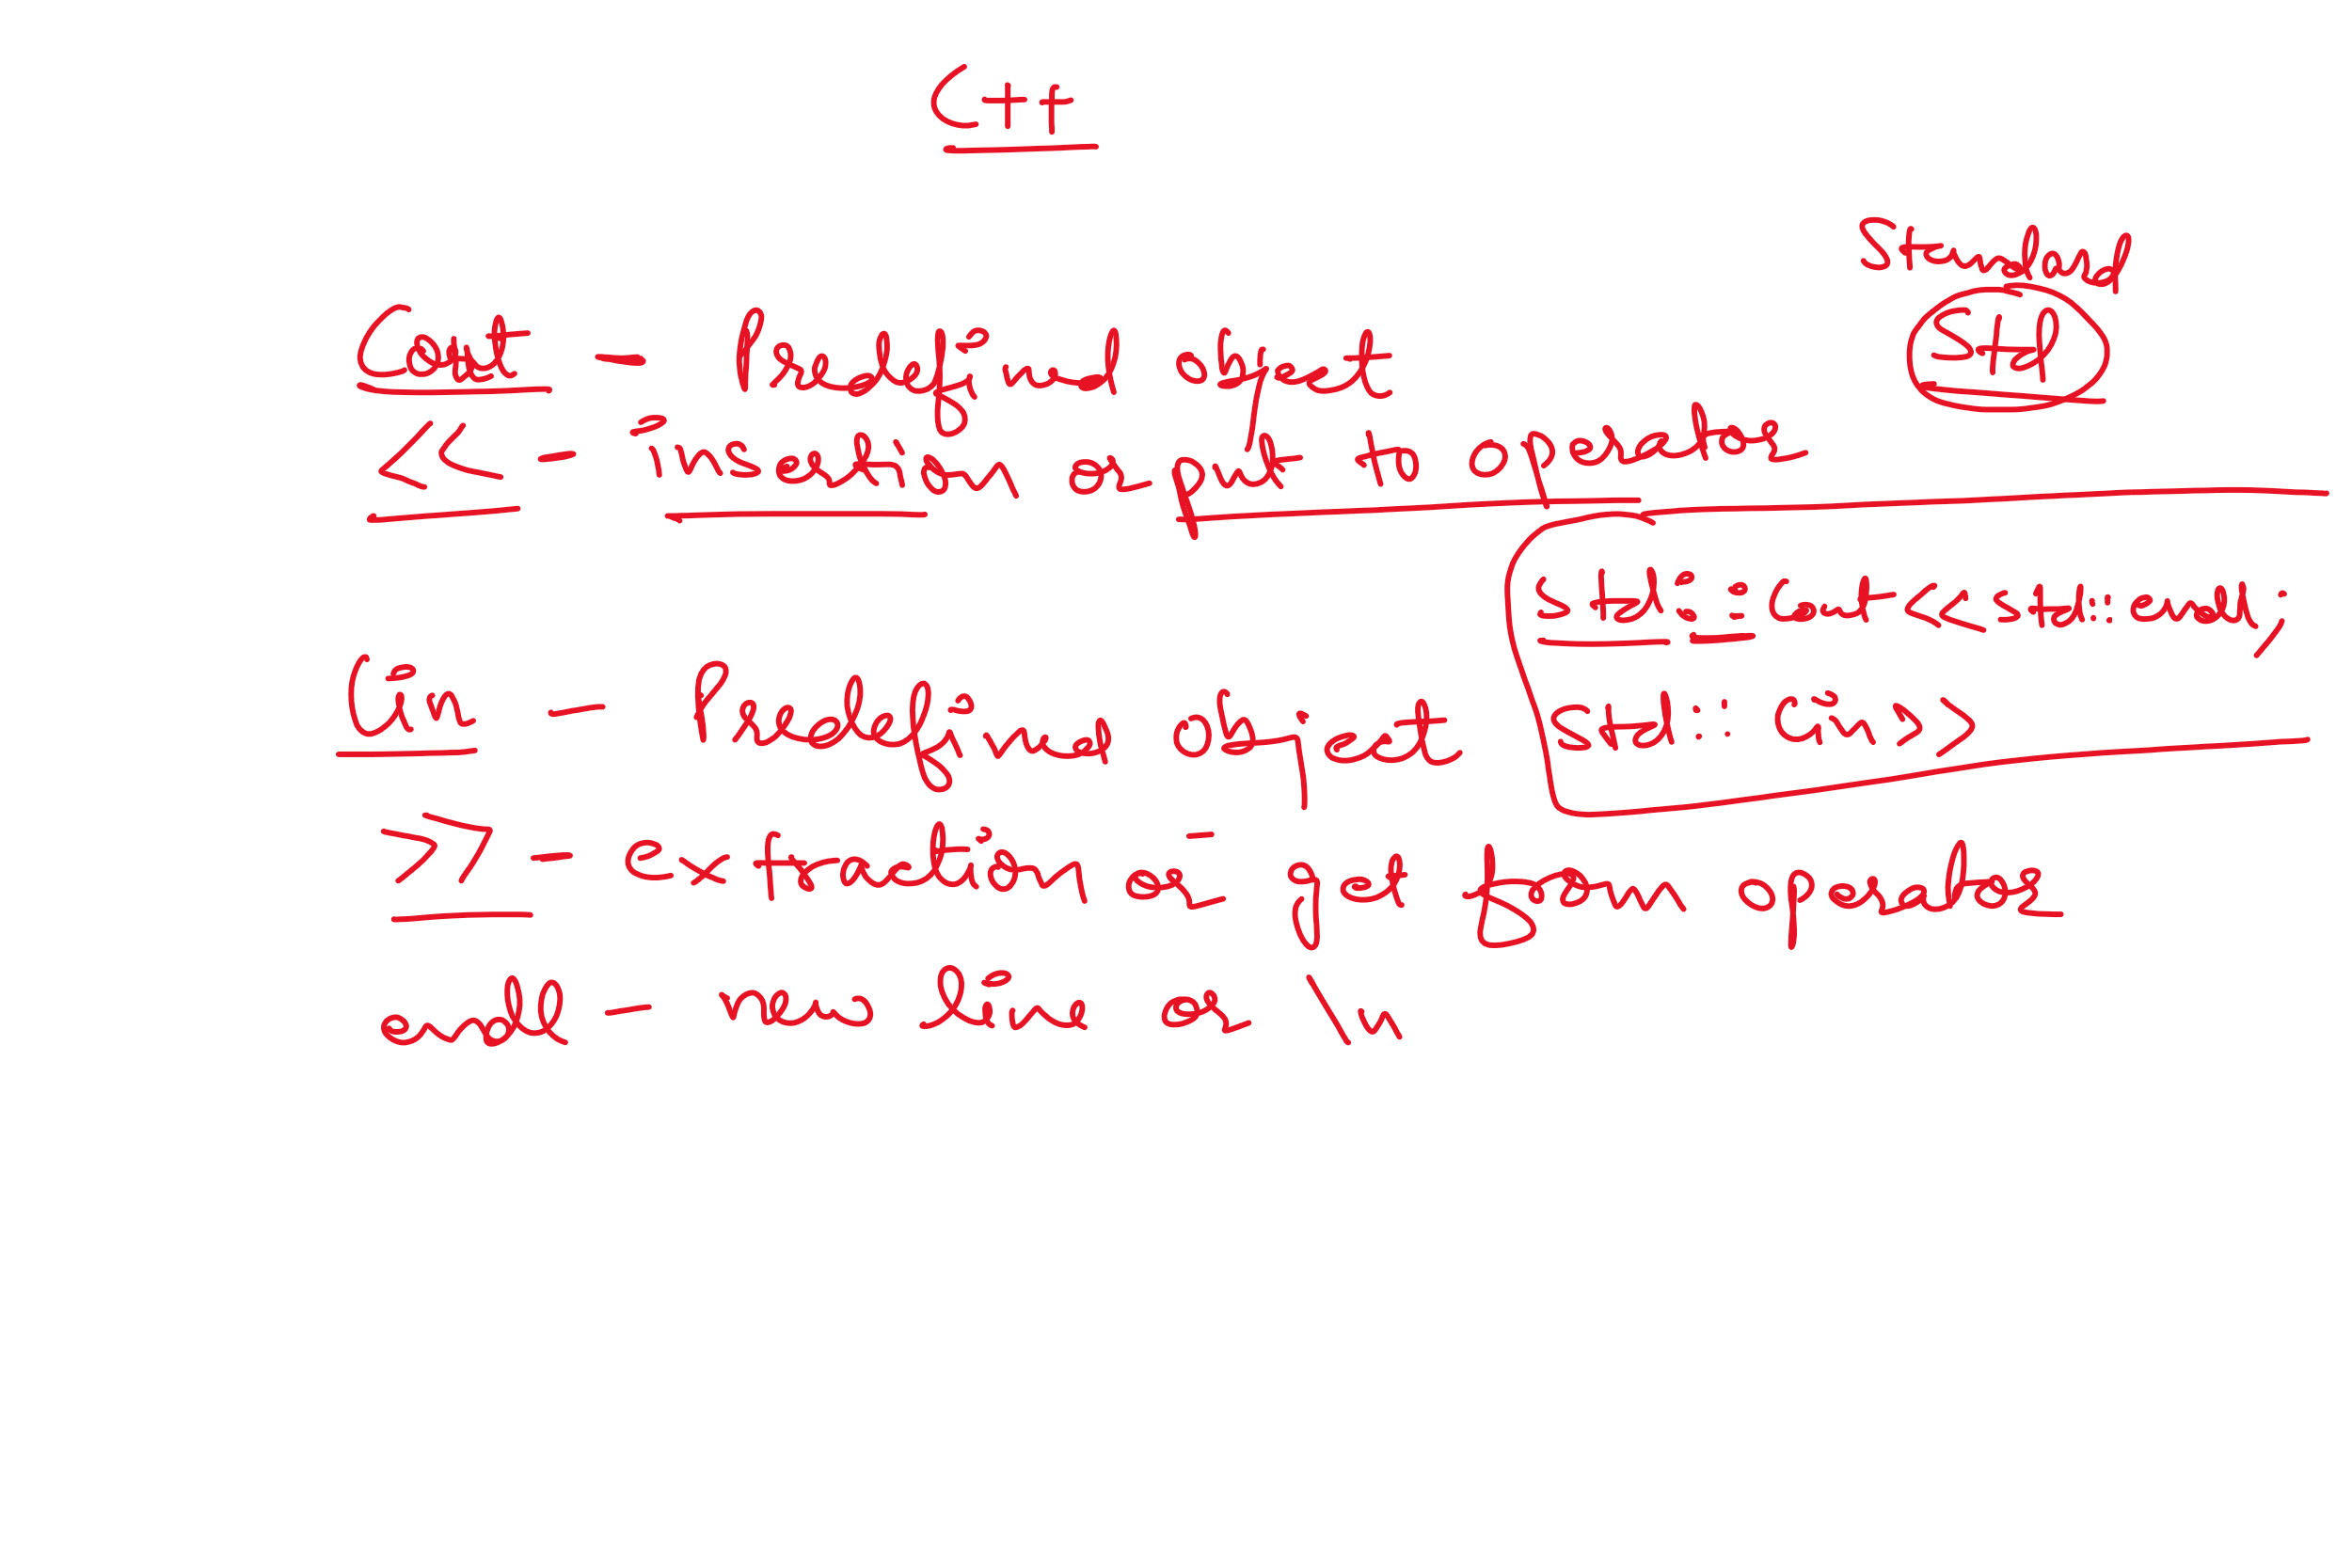 C++
Standard
Std
Cout - Predefined object
<< - insertion or put to operator
std::cout<<std::endl;
Cin - Predefined object
std::cin>>
>> - extraction or get from operator
endl - new line or \n